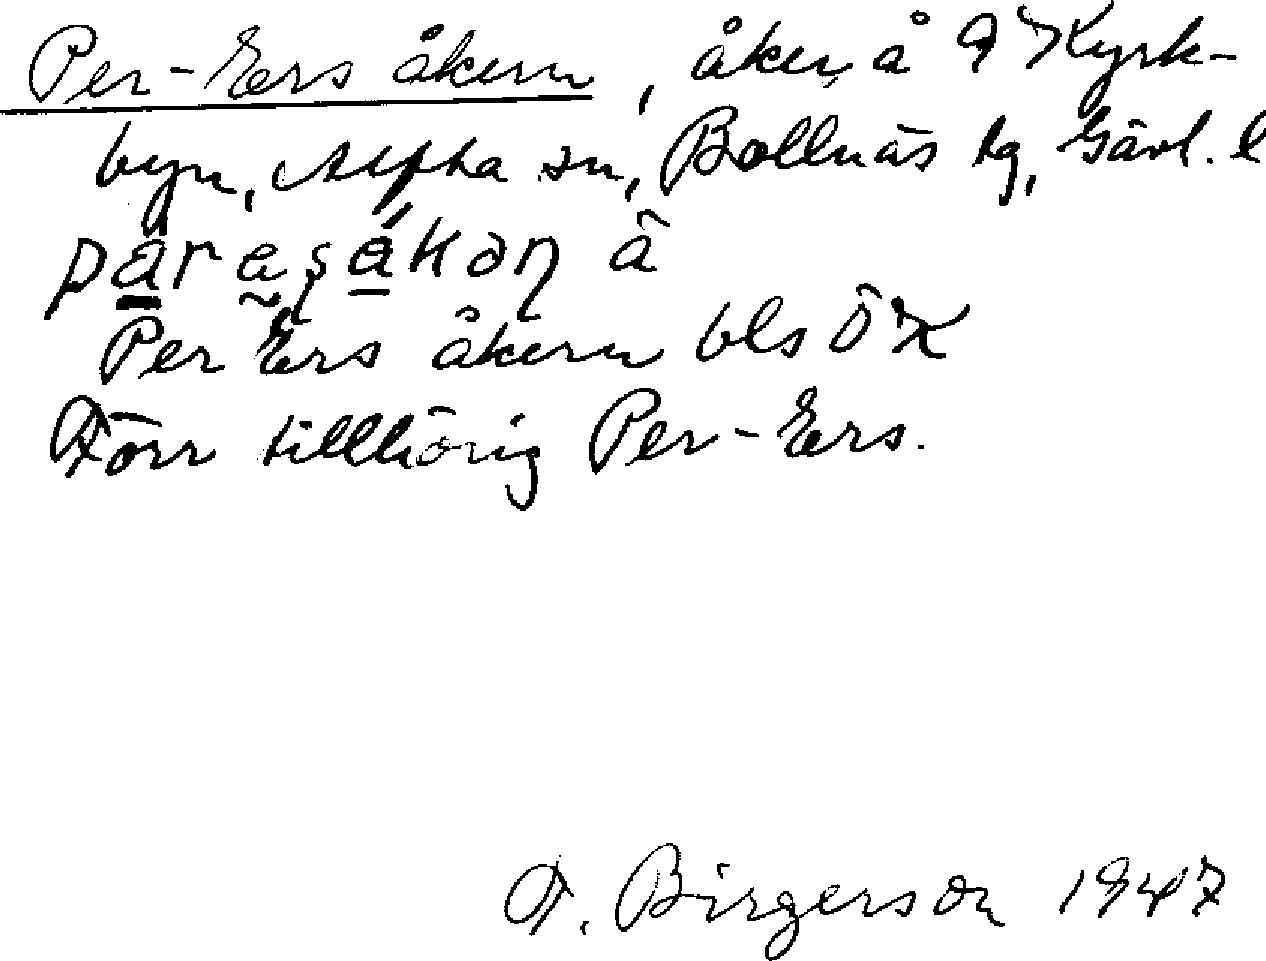 Per-Ers åkern, åker å 9 Kyrk-
byn, Alfta sn, Bollnäs tg, Gävl. l
Per Ers åkern bls ÖK
Förr tillhörig Per-Ers.
F. Birgerson 1947